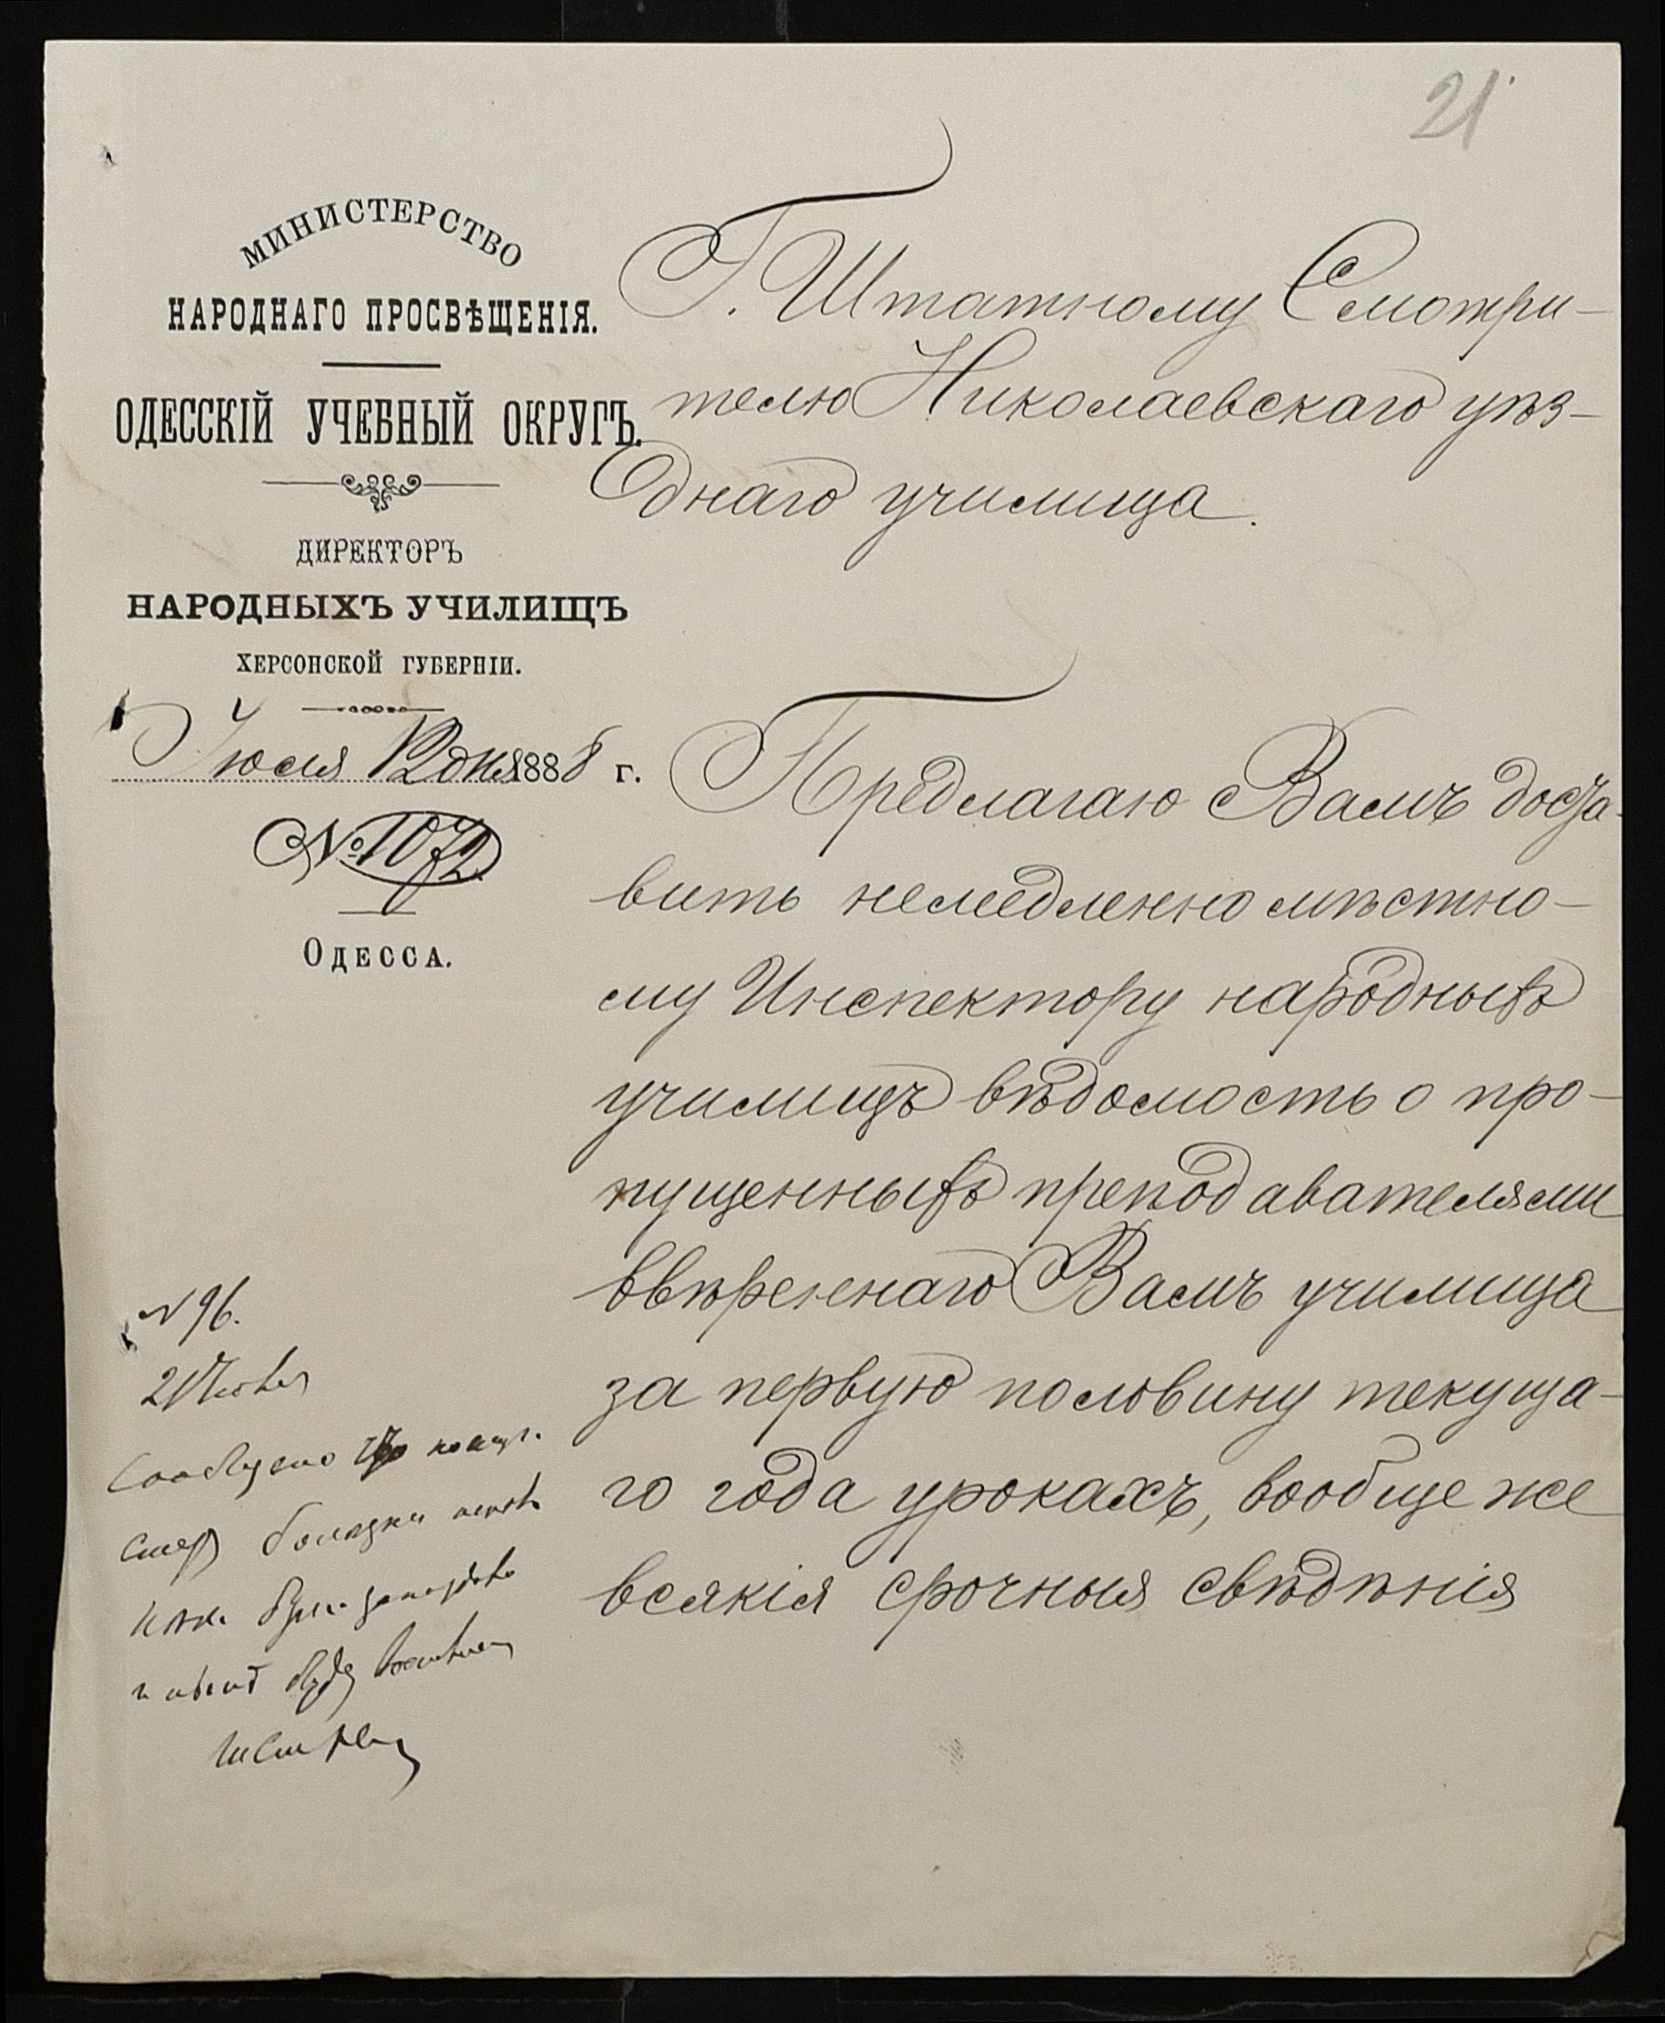 21
МИНИСТЕРСТВО
НАРОДНАГО ПРОСВѢЩЕНІЯ.
ОДЕССКІЙ УЧЕБНЫЙ ОКРУГЪ.
ДИРЕКТОРЪ
НАРОДНЫХЪ УЧИЛИЩЪ
ХЕРСОНСКОЙ ГУБЕРНІИ.
Іюля 12 дня 1888 г.
№ 1072.
ОДЕССА.
Г. Штатному Смотри-
телю Николаевскаго уѣз-
днаго училища.
Предлагаю Вамъ доста-
вить немедленно мѣстно-
му Инспектору народныхъ
училищъ вѣдомость о про-
пущенныхъ преподавателями
ввѣреннаго Вамъ училища
за первую половину текуща-
го года урокахъ, вообще же
всякія срочныя свѣдѣнія
N 96.
21 Іюля
Сообщено что